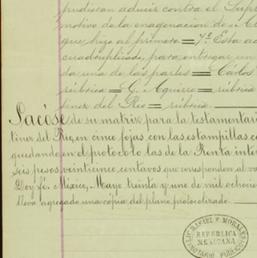 pudieran admitir contra el Supr
motivo de la enagenacion de
que hizo al primero = 7ª Esta
cuadruplicado, para entregar un
da una de las partes = Carlos
rúbrica = G. Aguirre = rúbrica
tinez del Rio = rúbrica
Sacóse de su matriz para la testamentari
tinez del Rio, en cinco fojas con las estampillas co
quedando en el protocolo las de la Renta inter
seis pesos veinticinco centavos que corresponden al va
Doy fé. México, Mayo treinta y uno de mil ochocien
lleva agregado una copia del plano protocolizado
RAFAEL F. MORALES
REPUBLICA
MEXICANA
NOTARIO PUBLICO